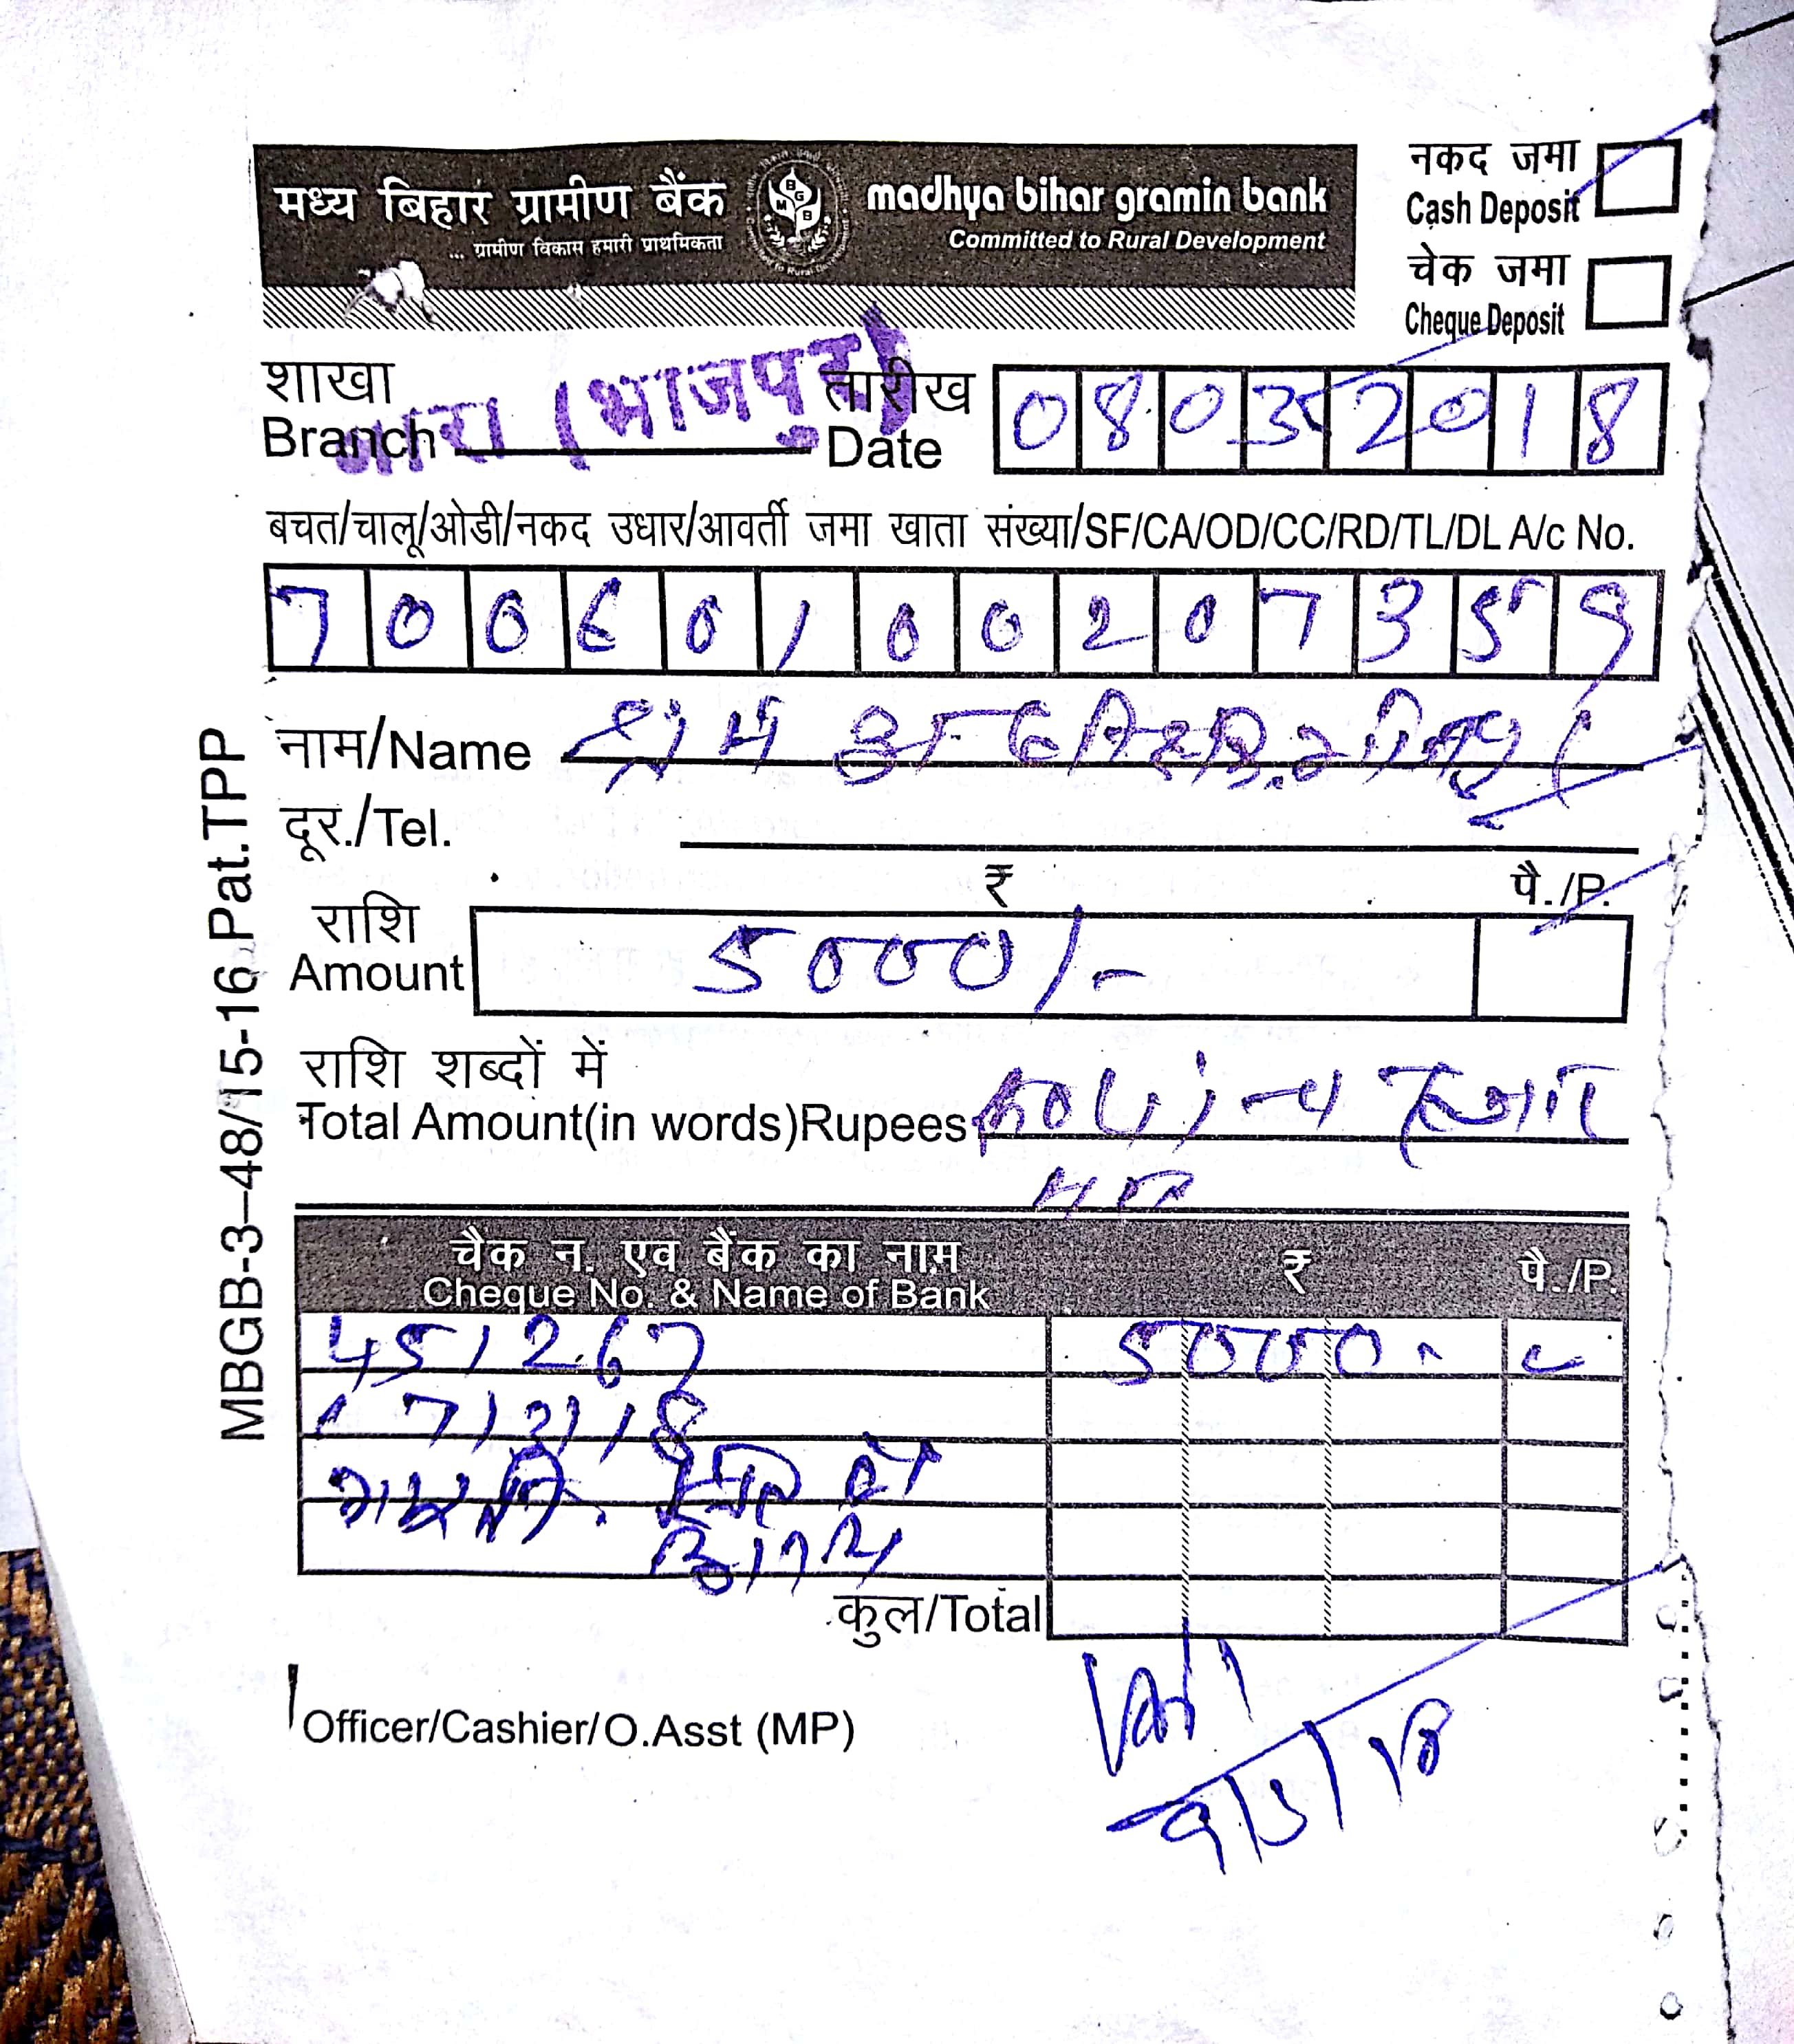 मध्य बिहार ग्रामीण बैंक
... ग्रामीण विकास हमारी प्राथमिकता
madhya bihar gramin bank
Committed to Rural Development
नकद जमा
Cash Deposit
चेक जमा
Cheque Deposit
शाखा
Branch
आरा (भोजपुर)
तारीख
Date
08032018
बचत/चालू/ओडी/नकद उधार/आवर्ती जमा खाता संख्या/SF/CA/OD/CC/RD/TL/DL A/c No.
70060100207359
नाम/Name
दूर./Tel.
₹ पै./P.
राशि
Amount
5000/-
राशि शब्दों में
Total Amount(in words)Rupees
हजार
चैक न. एव बैंक का नाम ₹ पै./P.
Cheque No. & Name of Bank
451267 5000
कुल/Total
Officer/Cashier/O.Asst (MP)
MBGB-3-48/15-16 Pat.TPP